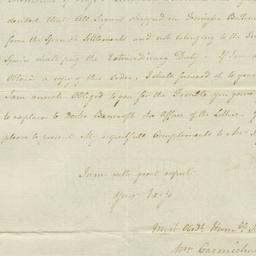 declared that All Sugars shipped in Foreign Bottoms
from the Spanish Settlements and not belonging to the
Spain shall pay the Extraordinary Duty. If I am
Obtain a copy of this Order, I shall forward it to your
I am much Obliged to you for the Trouble you gave
to explain to Doctor Bancroft the Affair of the Letters.
please to present My respectfull Compliments to Mr
I am with great respect
Your Excys
Most Obdt Humble
Wm Carmichael